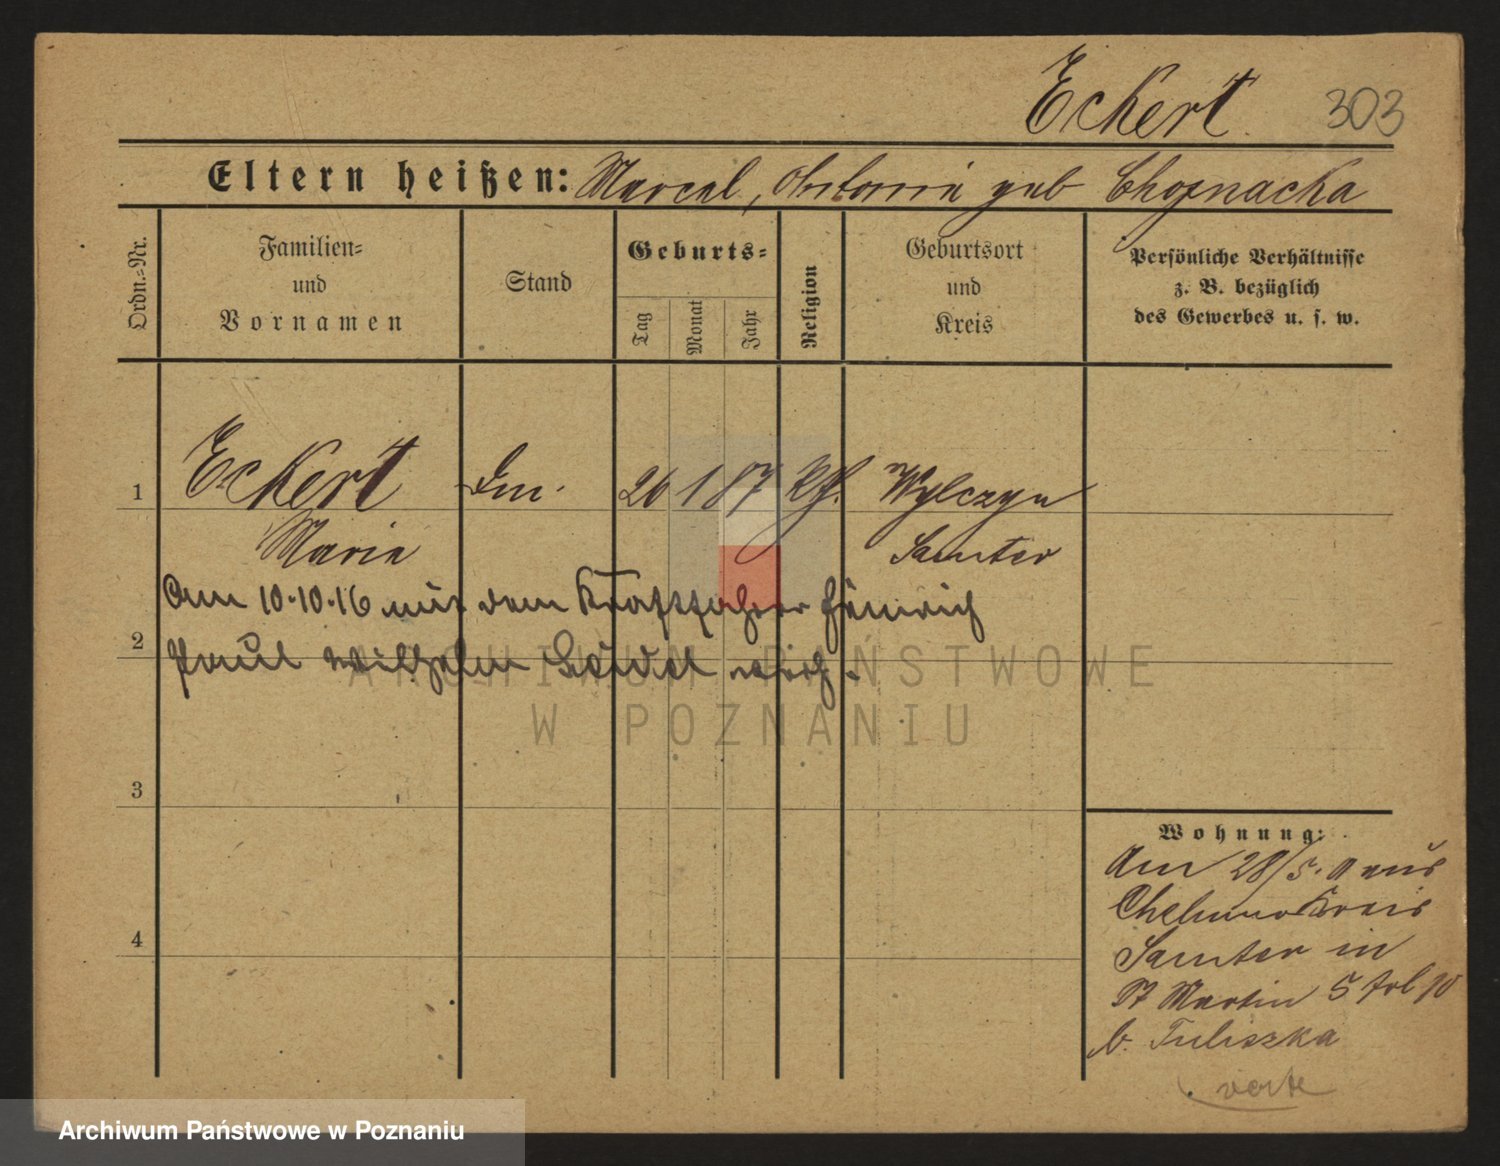 Eckert 303
Eltern heißen: Marcel, Antonie geb Chojnacka
Ordn.=Nr.
Familien=
und
Vornamen
Stand
Geburts=
Tag
Monat
Jahr
Religion
Geburtsort
und
Kreis
Persönliche Verhältnisse
z. B. bezüglich
des Gewerbes u. s. w.
1 Eckert 26 1 87 kth. Wylczyn
Marie Samter
Am 10.10.16 mit dem Kraftfahrer Heinrich
2
Paul Wilhelm verh.
ARCHIWUM PAŃSTWOWE
W POZNANIU
3
4
Wohnung:
Am 28/5. aus
Chelmno Kreis
Samter in
St Martin 5
b. Tuliszka
verte
Archiwum Państwowe w Poznaniu